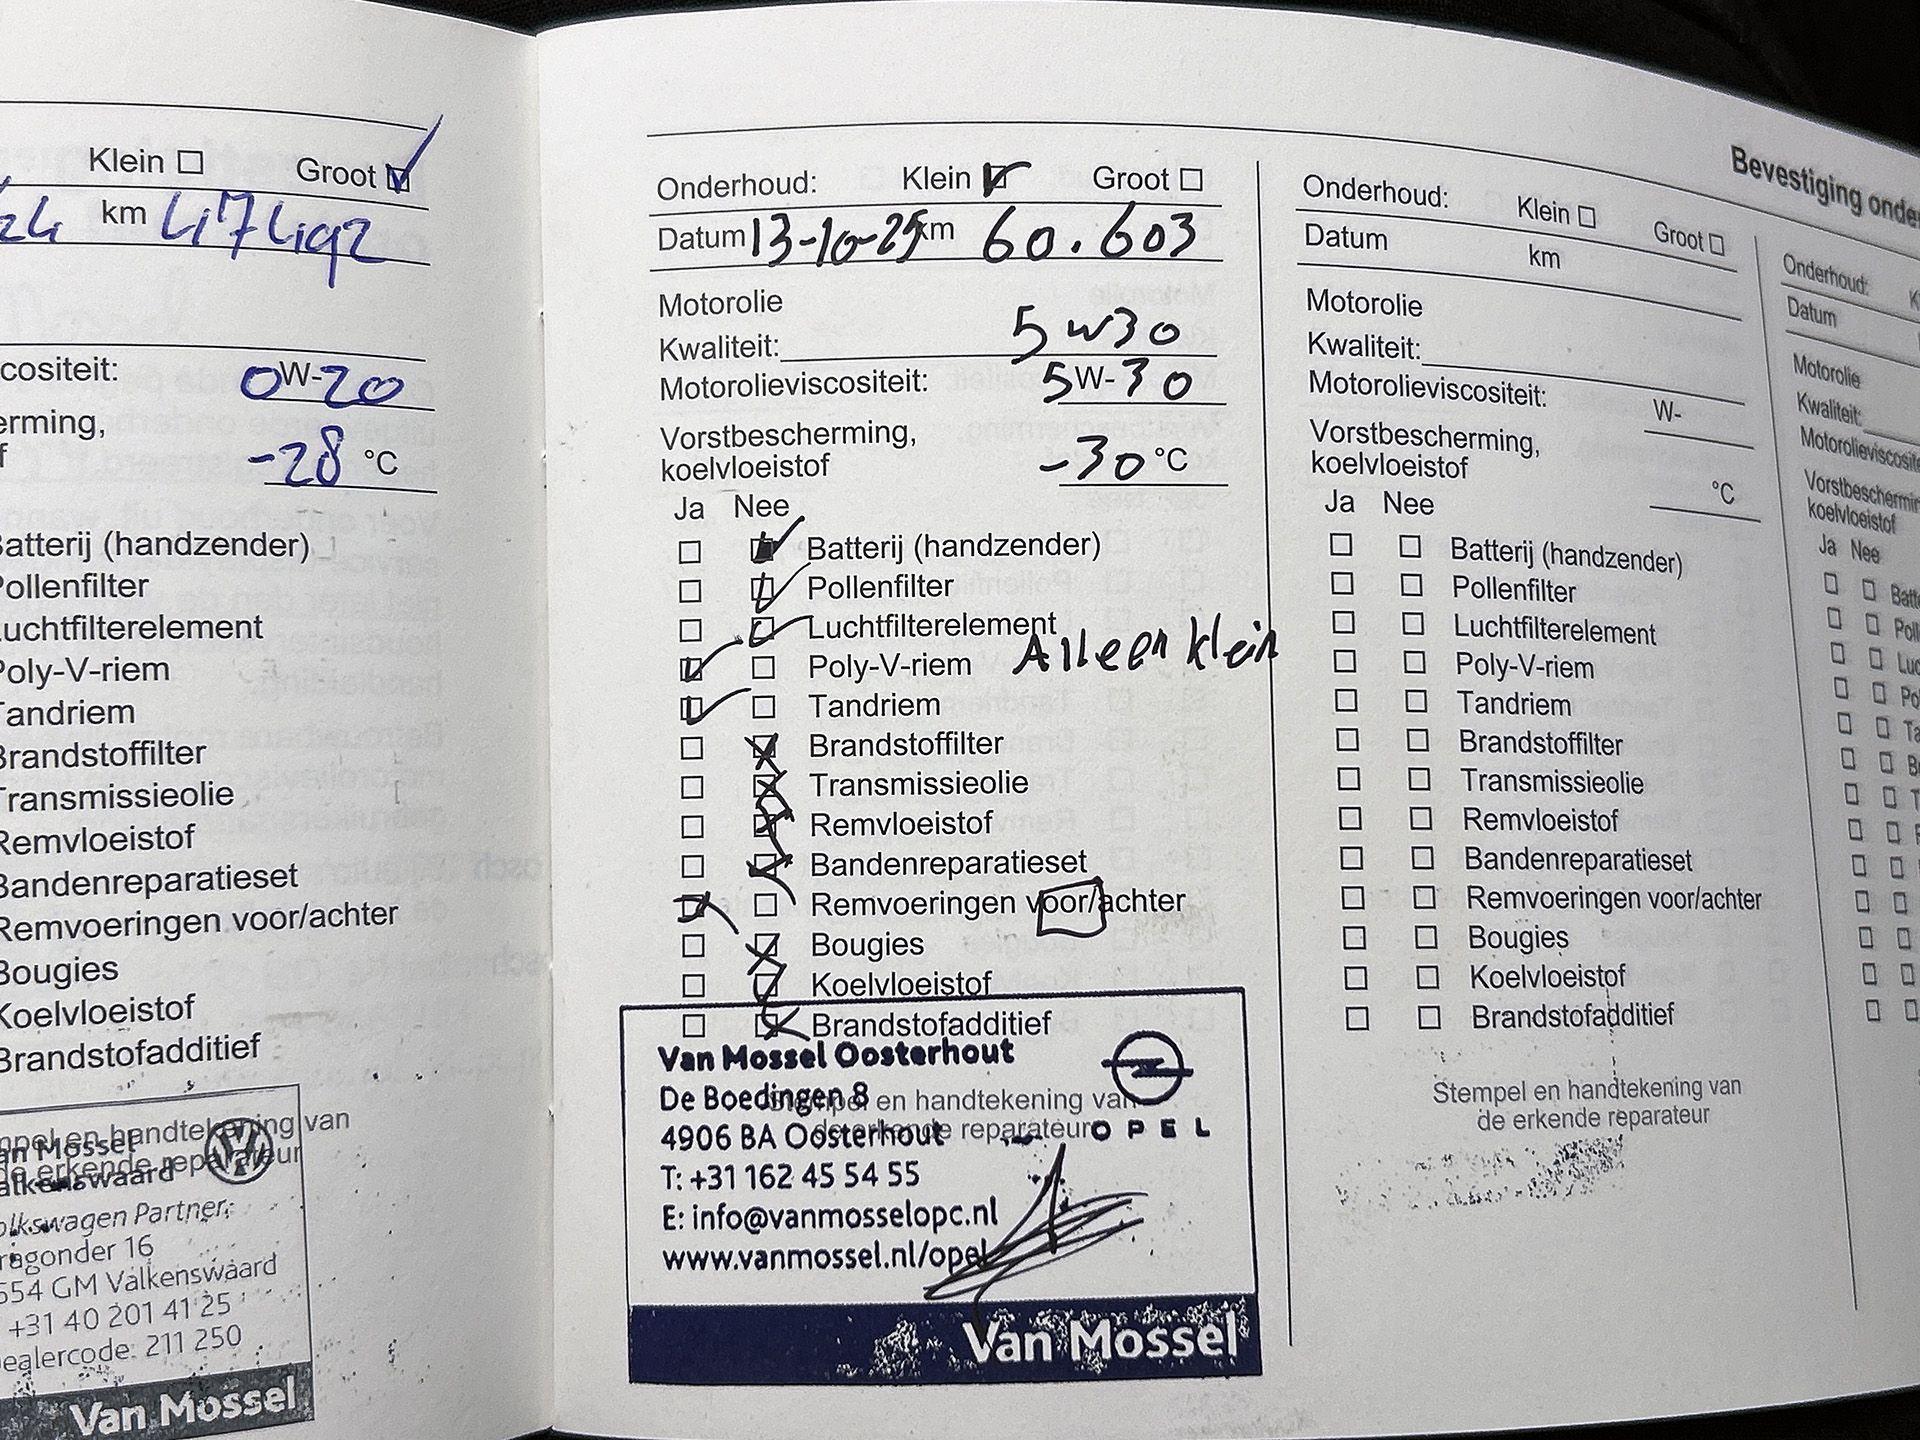 Klein Groot
km 47492
cositeit: 0W-20
erming,
f -28 °C
Batterij (handzender)
Pollenfilter
Luchtfilterelement
Poly-V-riem
Tandriem
Brandstoffilter
Transmissieolie
Remvloeistof
Bandenreparatieset
Remvoeringen voor/achter
Bougies
Koelvloeistof
Brandstofadditief
mpel en handtekening van
de erkende reparateur
an Mossel
alkenswaard
olkswagen Partner
ragonder 16
554 GM Valkenswaard
+31 40 201 41 25
ealercode: 211 250
Van Mossel
Onderhoud: Klein Groot
Datum 13-10-25 km 60.603
Motorolie
Kwaliteit: 5w30
Motorolieviscositeit: 5W-30
Vorstbescherming,
koelvloeistof -30 °C
Ja Nee
Batterij (handzender)
Pollenfilter
Luchtfilterelement
Poly-V-riem Alleen klein
Tandriem
Brandstoffilter
Transmissieolie
Remvloeistof
Bandenreparatieset
Remvoeringen voor/achter
Bougies
Koelvloeistof
Brandstofadditief
Stempel en handtekening van
de erkende reparateur
Van Mossel Oosterhout
De Boedingen 8
4906 BA Oosterhout
T: +31 162 45 54 55
E: info@vanmosselopc.nl
www.vanmossel.nl/opel
OPEL
Van Mossel
Bevestiging onde
Onderhoud: Klein Groot
Datum km
Motorolie
Kwaliteit:
Motorolieviscositeit: W-
Vorstbescherming,
koelvloeistof °C
Ja Nee
Batterij (handzender)
Pollenfilter
Luchtfilterelement
Poly-V-riem
Tandriem
Brandstoffilter
Transmissieolie
Remvloeistof
Bandenreparatieset
Remvoeringen voor/achter
Bougies
Koelvloeistof
Brandstofadditief
Stempel en handtekening van
de erkende reparateur
Onderhoud: K
Datum
Motorolie
Kwaliteit:
Motorolieviscosite
Vorstbeschermin
koelvloeistof
Ja Nee
Batte
Poll
Luc
Po
Ta
B
T